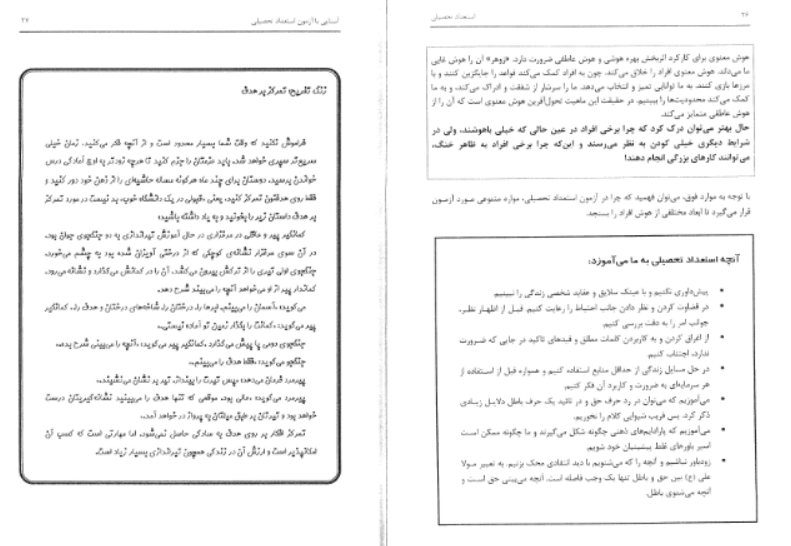 ۲۶
استعداد تحصیلی
هوش معنوی برای کارکرد اثربخش بهره هوشی و هوش عاطفی ضرورت دارد. «زوهر» آن را هوش غایی
ما می‌داند. هوش معنوی افراد را خلاق می‌کند، چون به افراد کمک می‌کند قواعد را جایگزین کنند و با
مرزها بازی کنند. به ما توانایی تمیز و انتخاب می‌دهد. ما را سرشار از شفقت و ادراک می‌کند، و به ما
کمک می‌کند محدودیت‌ها را ببینیم. در حقیقت این ماهیت تحول‌آفرین هوش معنوی است که آن را از
هوش عاطفی متمایز می‌کند.
حال بهتر می‌توان درک کرد که چرا برخی افراد در عین حالی که خیلی باهوشند، ولی در
شرایط دیگری خیلی کودن به نظر می‌رسند و این‌که چرا برخی افراد به ظاهر خنگ،
می‌توانند کارهای بزرگی انجام دهند!
با توجه به موارد فوق، می‌توان فهمید که چرا در آزمون استعداد تحصیلی، موارد متنوعی مورد آزمون
قرار می‌گیرد تا ابعاد مختلفی از هوش افراد را بسنجد.
آنچه استعداد تحصیلی به ما می‌آموزد:
• پیش‌داوری نکنیم و با عینک سلایق و عقاید شخصی زندگی را نبینیم.
• در قضاوت کردن و نظر دادن جانب احتیاط را رعایت کنیم. قبل از اظهار نظر،
جوانب امر را به دقت بررسی کنیم.
• از اغراق کردن و به کاربردن کلمات مطلق و قیدهای تاکید در جایی که ضرورت
ندارد، اجتناب کنیم.
• در حل مسایل زندگی از حداقل منابع استفاده کنیم و همواره قبل از استفاده از
هر سرمایه‌ای به ضرورت و کاربرد آن فکر کنیم.
• می‌آموزیم که می‌توان در رد حرف حق و در تائید یک حرف باطل دلایل زیادی
ذکر کرد. پس فریب شیوایی کلام را نخوریم.
• می‌آموزیم که پارادایم‌های ذهنی چگونه شکل می‌گیرند و ما چگونه ممکن است
اسیر باورهای غلط پیشینیان خود شویم.
• زودباور نباشیم و آنچه را که می‌شنویم با دید انتقادی محک بزنیم. به تعبیر مولا
علی (ع) بین حق و باطل تنها یک وجب فاصله است. آنچه می‌بینی حق است و
آنچه می‌شنوی باطل.
آشنایی با آزمون استعداد تحصیلی
۲۷
زنگ تفریح: تمرکز بر هدف
فراموش نکنید که وقت شما بسیار محدود است و از آنچه فکر می‌کنید، زمان خیلی
سریع‌تر سپری خواهد شد. باید عزمتان را جزم کنید تا هرچه زودتر به اوج آمادگی درس
خواندن برسید. دوستان برای چند ماه هرگونه مساله حاشیه‌ای را از ذهن خود دور کنید و
فقط روی هدفتون تمرکز کنید، یعنی، قبولی در یک دانشگاه خوب. بد نیست در مورد تمرکز
بر هدف داستان زیر را بخونید و به یاد داشته باشید:
کمانگیر پیر و عاقلی در مرغزاری در حال آموزش تیراندازی به دو جنگجوی جوان بود.
در آن سوی مرغزار نشانه‌ی کوچکی که از درختی آویزان شده بود به چشم می‌خورد.
جنگجوی اولی تیری را از ترکش بیرون می‌کشد. آن را در کمانش می‌گذارد و نشانه می‌رود.
کماندار پیر از او می‌خواهد آنچه را می‌بیند شرح دهد.
می‌گوید: «آسمان را می‌بینم، ابرها را، درختان را، شاخه‌های درختان و هدف را». کمانگیر
پیر می‌گوید: «کمانت را بگذار زمین تو آماده نیستی».
جنگجوی دومی پا پیش می‌گذارد. کمانگیر پیر می‌گوید: «آنچه را می‌بینی شرح بده».
جنگجو می‌گوید: «فقط هدف را می‌بینم».
پیرمرد فرمان می‌دهد: «پس تیرت را بینداز». تیر بر نشان می‌نشیند.
پیرمرد می‌گوید: «عالی بود. موقعی که تنها هدف را می‌بینید نشانه‌گیریتان درست
خواهد بود و تیرتان بر طبق میلتان به پرواز در خواهد آمد».
تمرکز افکار بر روی هدف به سادگی حاصل نمی‌شود. اما مهارتی است که کسب آن
امکانپذیر است و ارزش آن در زندگی همچون تیراندازی بسیار زیاد است.